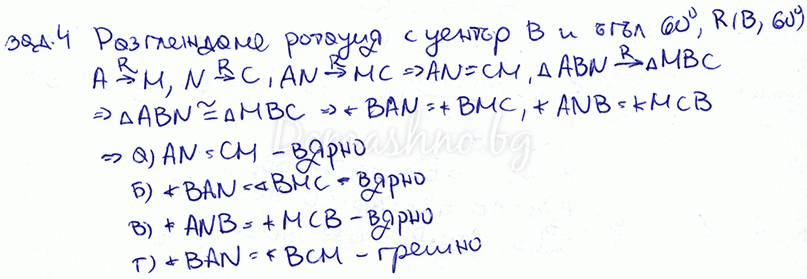 зад.4 Разглеждаме ротация с център B и ъгъл 60°, R(B, 60°)
A →R M, N →R C, AN →R MC ⇒ AN = CM, △ABN →R △MBC
⇒ △ABN ≅ △MBC ⇒ ∢BAN = ∢BMC, ∢ANB = ∢MCB
Domashno.bg
⇒ а) AN = CM – вярно
б) ∢BAN = ∢BMC – вярно
в) ∢ANB = ∢MCB – вярно
г) ∢BAN = ∢BCM – грешно